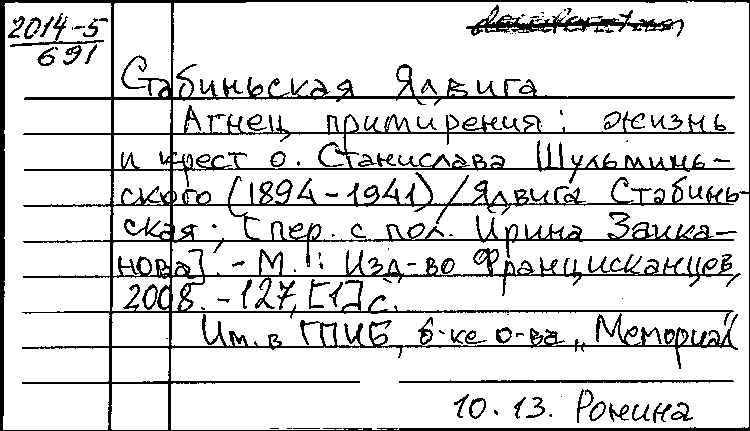 2014-5
691
Стабиньская Ядвига
Агнец примирения: жизнь
и крест о. Станислава Шульминь-
ского (1894-1941) / Ядвига Стабинь-
ская; [пер. с пол. Ирина Заика-
нова]. - М.: Изд-во Францисканцев,
2008. - 127, [1] с.
Им. в ГПИБ, б-ке о-ва „Мемориал"
10.13. Ронина